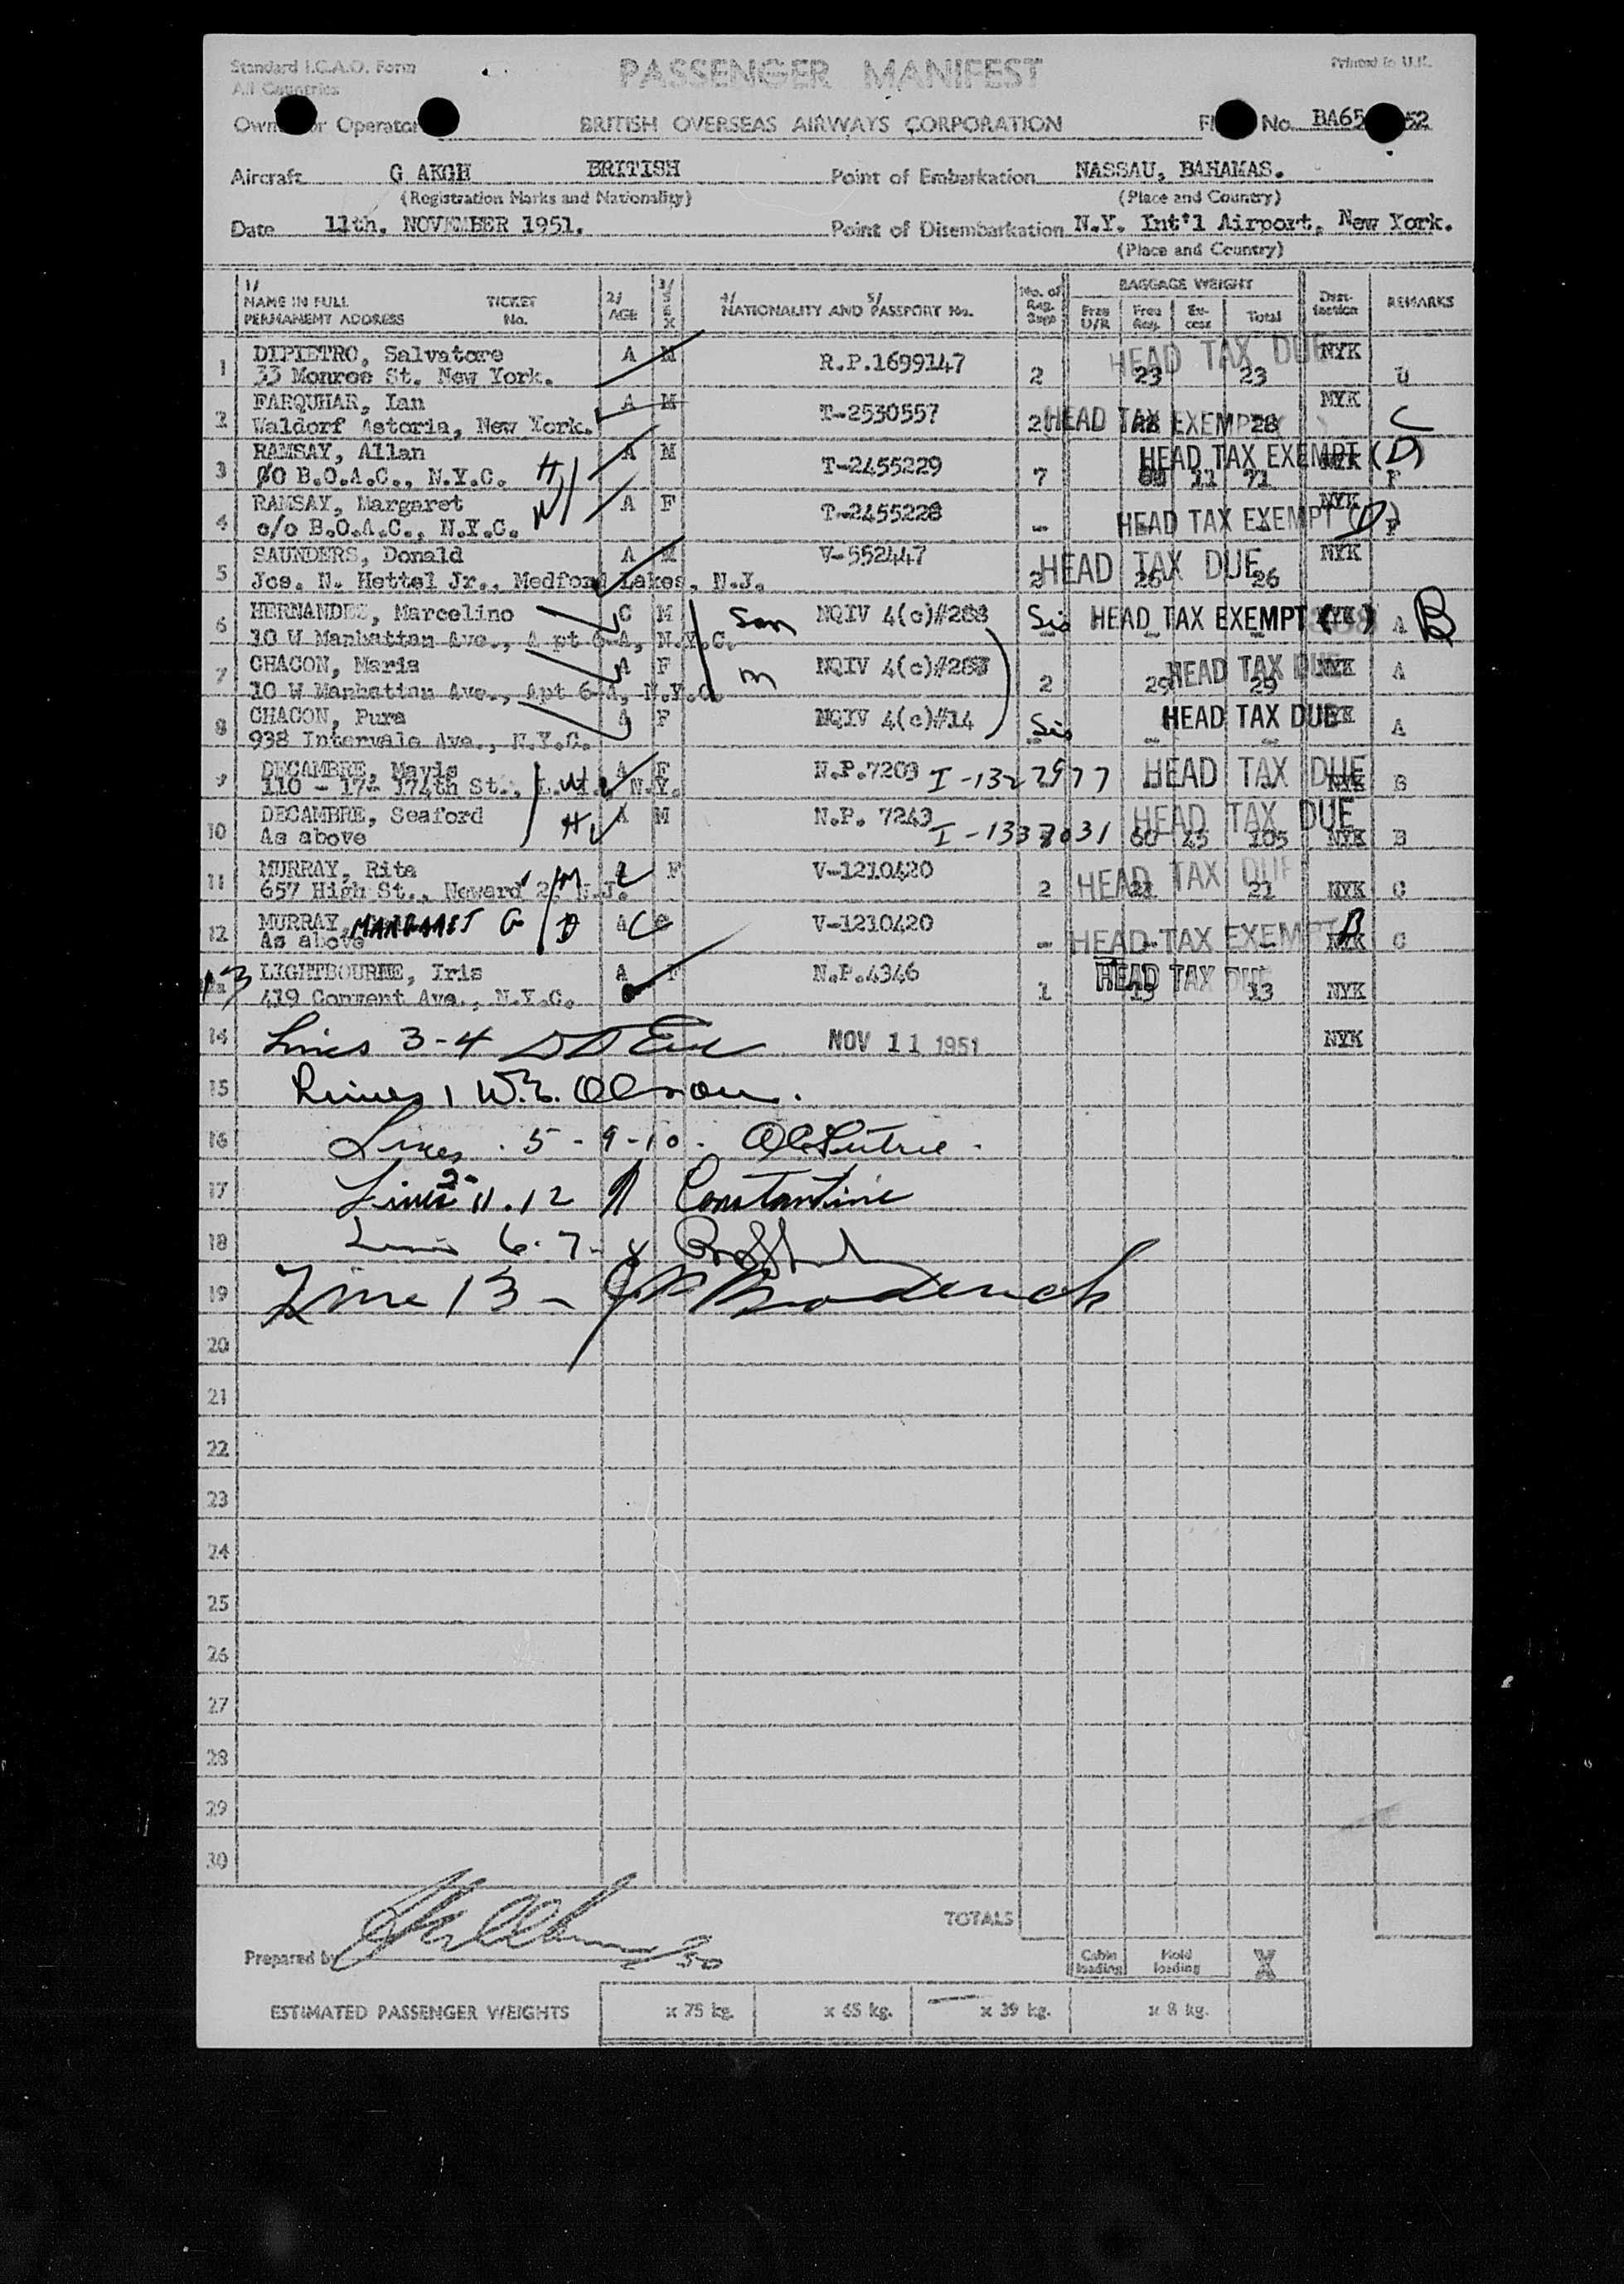 Standard I.C.A.O. Form
All Countries
PASSENGER MANIFEST
Printed in U.K.
or Operator BRITISH OVERSEAS AIRWAYS CORPORATION No. BA65 52
Aircraft G AKGH BRITISH Point of Embarkation NASSAU, BAHAMAS.
(Registration Marks and Nationality) (Place and Country)
Date 11th. NOVEMBER 1951. Point of Disembarkation N.Y. Int'l Airport, New York.
(Place and Country)
1/ NAME IN FULL PERMANENT ADDRESS TICKET No. 2/ AGE 3/ SEX 4/ 5/ NATIONALITY AND PASSPORT No. No. of Reg. Bags BAGGAGE WEIGHT Free U/R Free Reg. Ex-cess Total Dest-ination REMARKS
1 DIPIETRO, Salvatore A M R.P.1699147 HEAD TAX DUE NYK
33 Monroe St. New York. 2 23 23
2 FARQUHAR, Ian A M T-2530557 NYK C
Waldorf Astoria, New York. 2 HEAD TAX EXEMPT 28 28
3 RAMSAY, Allan A M T-2455229 HEAD TAX EXEMPT (D) NYK
c/o B.O.A.C., N.Y.C. H 7 11 71 F
4 RAMSAY, Margaret A F T-2455228 NYK
c/o B.O.A.C., N.Y.C. W - HEAD TAX EXEMPT (D) F
5 SAUNDERS, Donald A M V-552447 HEAD TAX DUE NYK
Jos. N. Hettel Jr., Medford Lakes, N.J. 2 26 26
6 HERNANDEZ, Marcelino C M Son NQIV 4(c)#288 Sis HEAD TAX EXEMPT ( ) NYK A B
10 W Manhattan Ave., A pt 6-A, N.Y.C.
7 CHACON, Maria A F m NQIV 4(c)#287 HEAD TAX DUE NYK A
10 W Manhattan Ave., Apt 6-A, N.Y.C. 2 29 29
8 CHACON, Pura A F NQIV 4(c)#14 Sis HEAD TAX DUE NYK A
938 Intervale Ave., N.Y.C.
9 DECAMBRE, Mavis W A F N.P.7203 I-1327977 HEAD TAX DUE NYK B
110 - 17- 174th St., L.I., N.Y.
10 DECAMBRE, Seaford H A M N.P. 7243 I-1337031 HEAD TAX DUE
As above 60 45 105 NYK B
11 MURRAY, Rita M F V-1210420 HEAD TAX DUE
657 High St., Neward 2, N.J. 2 21 21 NYK C
12 MURRAY, MARGARET G D C V-1210420 HEAD TAX EXEMPT B NYK C
As above
13 LIGHTBOURNE, Iris A F N.P.4346 HEAD TAX DUE
419 Convent Ave., N.Y.C. 1 13 13 NYK
14 Lines 3-4 NOV 11 1951 NYK
15 Lines 1 W.E. Olson.
16 Lines . 5 - 9-10.
17 Lines 2- 11. 12 Constantine
18 Lines 6. 7- 8
19 Line 13 - Broderick
20
21
22
23
24
25
26
27
28
29
30
TOTALS
Prepared by Cabin loading Hold loading X
ESTIMATED PASSENGER WEIGHTS x 75 kg. x 65 kg. x 39 kg. x 8 kg.